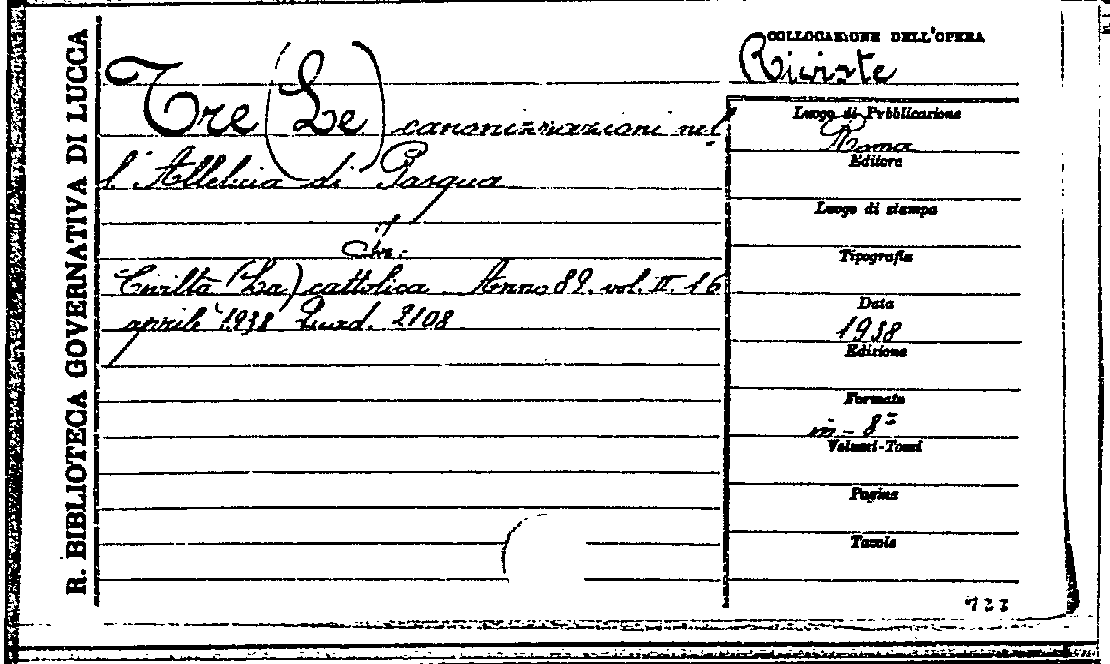 R. BIBLIOTECA GOVERNATIVA DI LUCCA
Tre (Le) canonizzazioni nel
l'Alleluia di Pasqua
Civiltà (La) cattolica. Anno 89. vol. II. 16
aprile 1938 Quad. 2108
COLLOCAZIONE DELL'OPERA
Riviste
Luogo di Pubblicazione
Roma
Editore
Luogo di stampa
Tipografia
Data
1938
Edizione
Formato
in-8°
Volumi-Tomi
Pagine
Tavole